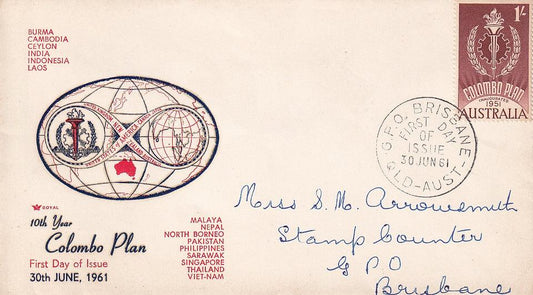 BURMA
CAMBODIA
CEYLON
INDIA
INDONESIA
LAOS
1/-
COLOMBO PLAN
INAUGURATED
1951
AUSTRALIA
G.P.O. BRISBANE
FIRST DAY
OF
ISSUE
30 JUN 61
QLD-AUST-
ROYAL
10th Year
Colombo Plan
First Day of Issue
30th JUNE, 1961
MALAYA
NEPAL
NORTH BORNEO
PAKISTAN
PHILIPPINES
SARAWAK
SINGAPORE
THAILAND
VIET-NAM
Miss S. M. Arrowsmith
Stamp Counter
G P O
Brisbane